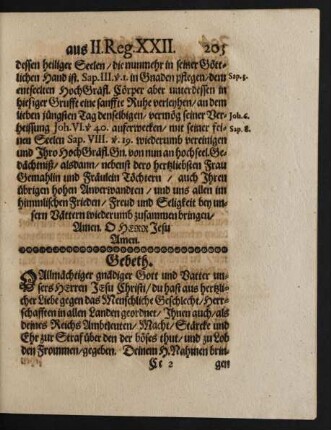 aus II. Reg. XXII. 205
dessen heiliger Seelen / die nunmehr in seiner Gött-
lichen Hand ist. Sap. III. v. 1. in Gnaden pflegen / dem Sap. 3.
entseelten HochGräfl. Cörper aber unterdessen in
hiesiger Grufft eine sanffte Ruhe verleyhen / an dem
lieben jüngsten Tag denselbigen / vermög seiner Ver- Joh. 6.
heissung Joh. VI. v. 40. auferwecken / mit seiner fei-
nen Seelen Sap. VIII. v. 19. wiederumb vereinigen Sap. 8.
und Ihro HochGräfl. Gn. von nun an hochseel. Ge-
dächtnüß / alsdann / nebenst dero hertzliebsten Frau
Gemahlin und Fräulein Töchtern / auch Ihren
übrigen hohen Anverwandten / und uns allen im
himmlischen Frieden / Freud und Seligkeit bey un-
sern Vättern wiederumb zusammen bringen /
Amen. O HERR JEsu
Amen.
Gebeth.
O Allmächtiger gnädiger Gott und Vatter un-
sers HErren JEsu Christi / du hast aus hertzli-
cher Liebe gegen das Menschliche Geschlecht / Herr-
schafften in allen Landen geordnet / Ihnen auch / als
deines Reichs Ambtleuten / Macht / Stärcke und
Ehr zur Straf über den der böses thut / und zu Lob
den Frommen / gegeben. Deinem H. Nahmen brin-
Cc 2 gen